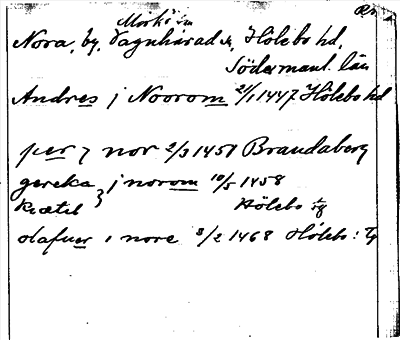 Mörkö sn
Nora, by, Vagnhärad sn, Hölebo hd,
Södermanl. län
Andres j Noorom 21/1 1447 Hölebo hd
per j nor 2/3 1451 Brandaberg
gereka } j norom 10/5 1458
Kætil Hölebo tg
olafuer i nore 3/2 1468 Hölebo: tg